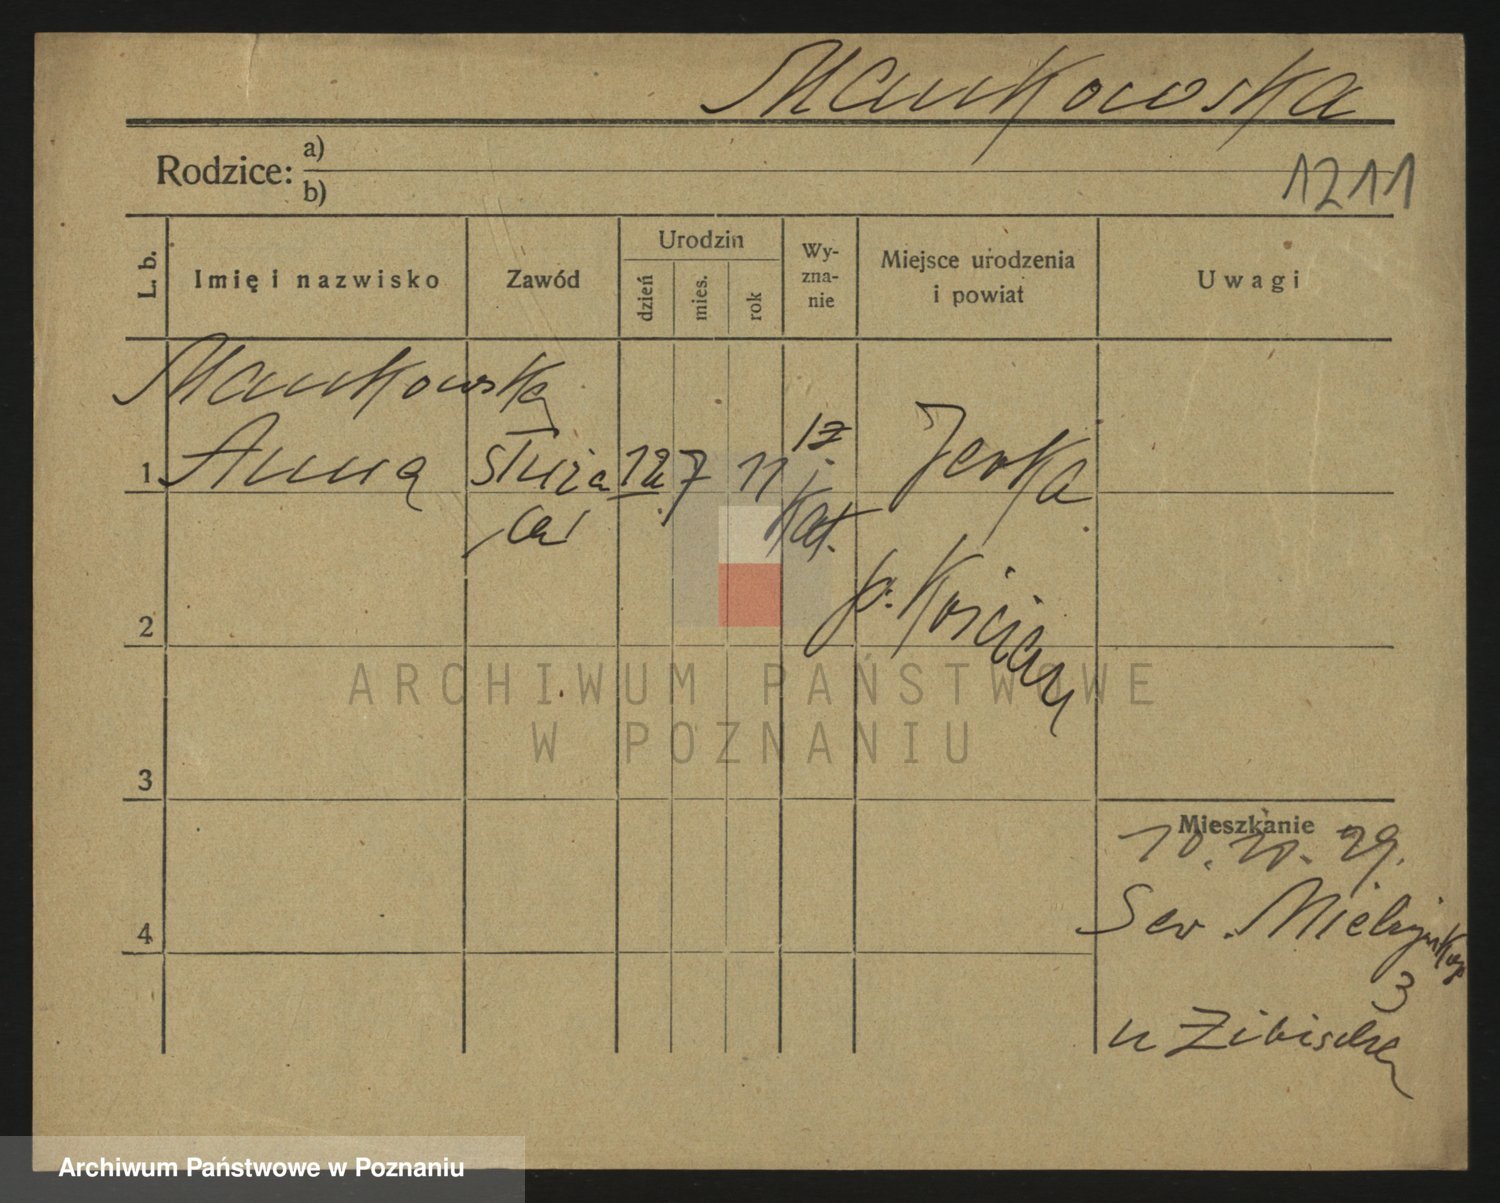 Mankowska
Rodzice: a)
b)
1211
L. b.
Imię i nazwisko
Zawód
Urodzin
dzień
mies.
rok
Wy-
zna-
nie
Miejsce urodzenia
i powiat
Uwagi
Mankowska
1 Anna
służą
ca
12 7 11
rz.
kat.
Jerka
p. Kościan
2
3
4
Mieszkanie
29.
Sew. Mielżyńskiego
3
u
ARCHIWUM PAŃSTWOWE
W POZNANIU
Archiwum Państwowe w Poznaniu